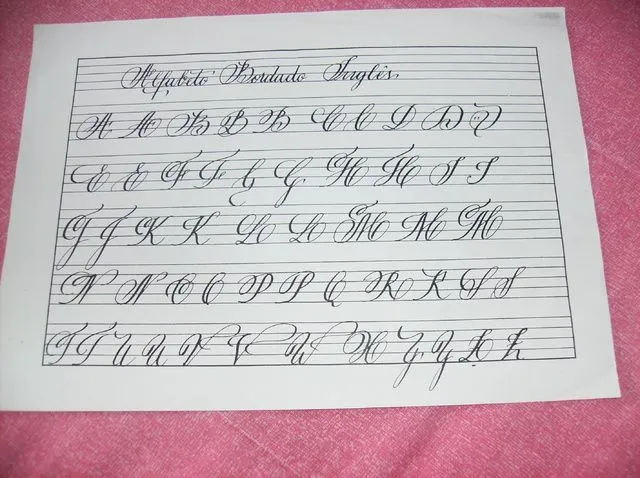 Alfabeto Bordado Inglês.
A A B B B C C D D D
E E F F G G H H I I
J J K K L L M M M
N N O O P P Q R R S S
T T U U V V W X Y Y Z Z